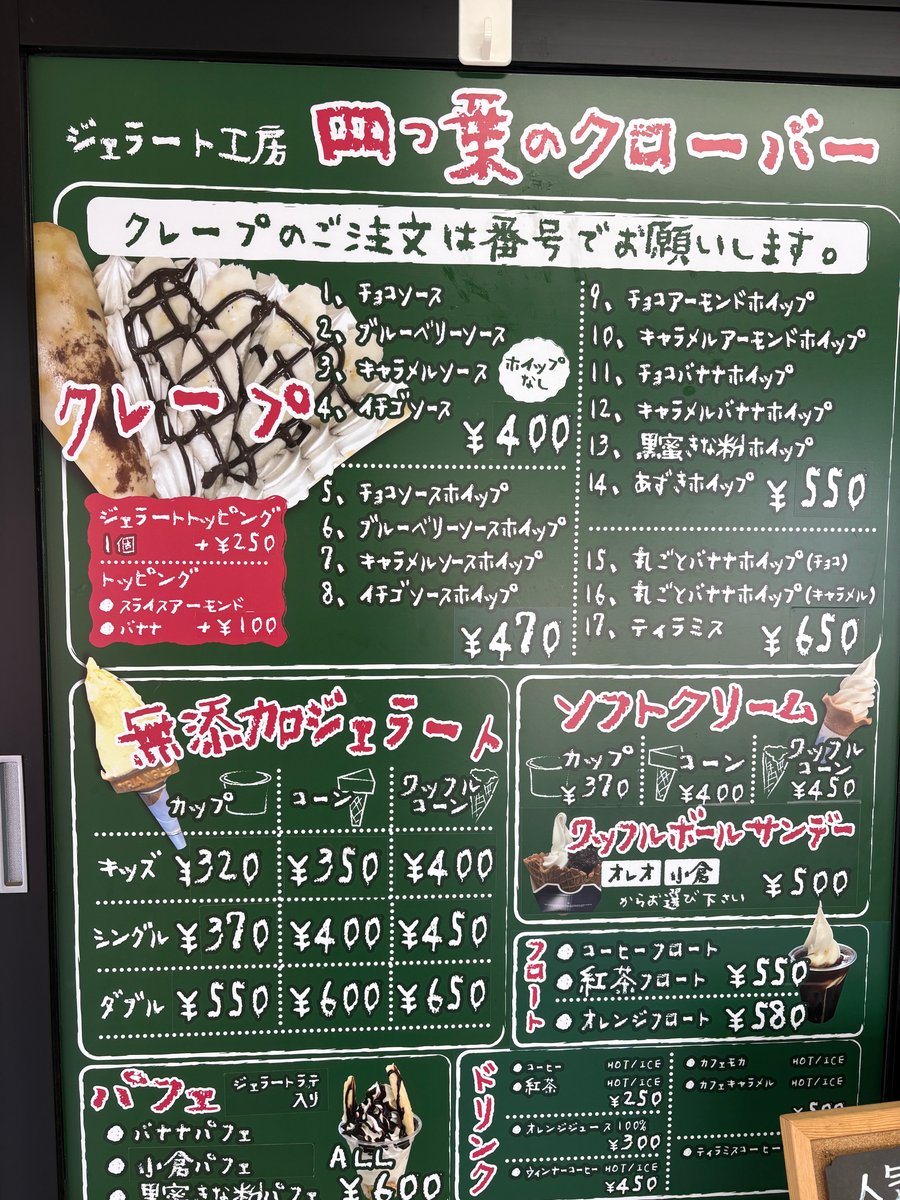 ジェラート工房 四つ葉のクローバー
クレープのご注文は番号でお願いします。
クレープ
1、チョコソース
2、ブルーベリーソース
3、キャラメルソース
4、イチゴソース
ホイップ
なし
¥400
5、チョコソースホイップ
6、ブルーベリーソースホイップ
7、キャラメルソースホイップ
8、イチゴソースホイップ
¥470
9、チョコアーモンドホイップ
10、キャラメルアーモンドホイップ
11、チョコバナナホイップ
12、キャラメルバナナホイップ
13、黒蜜きな粉ホイップ
14、あずきホイップ ¥550
15、丸ごとバナナホイップ(チョコ)
16、丸ごとバナナホイップ(キャラメル)
17、ティラミス ¥650
ジェラートトッピング
1個 +¥250
トッピング
●スライスアーモンド
●バナナ +¥100
無添加ジェラート
カップ コーン ワッフルコーン
キッズ ¥320 ¥350 ¥400
シングル ¥370 ¥400 ¥450
ダブル ¥550 ¥600 ¥650
ソフトクリーム
カップ ¥370
コーン ¥400
ワッフルコーン ¥450
ワッフルボールサンデー
オレオ 小倉
からお選び下さい ¥500
フロート
●コーヒーフロート
●紅茶フロート ¥550
●オレンジフロート ¥580
パフェ
ジェラートラテ
入り
●バナナパフェ
●小倉パフェ
●黒蜜きな粉パフェ
ALL
¥600
ドリンク
●コーヒー HOT/ICE
●紅茶 HOT/ICE
¥250
●オレンジジュース100%
¥300
●ウィンナーコーヒー HOT/ICE
¥450
●カフェモカ HOT/ICE
●カフェキャラメル HOT/ICE
●ティラミスコーヒー
人気